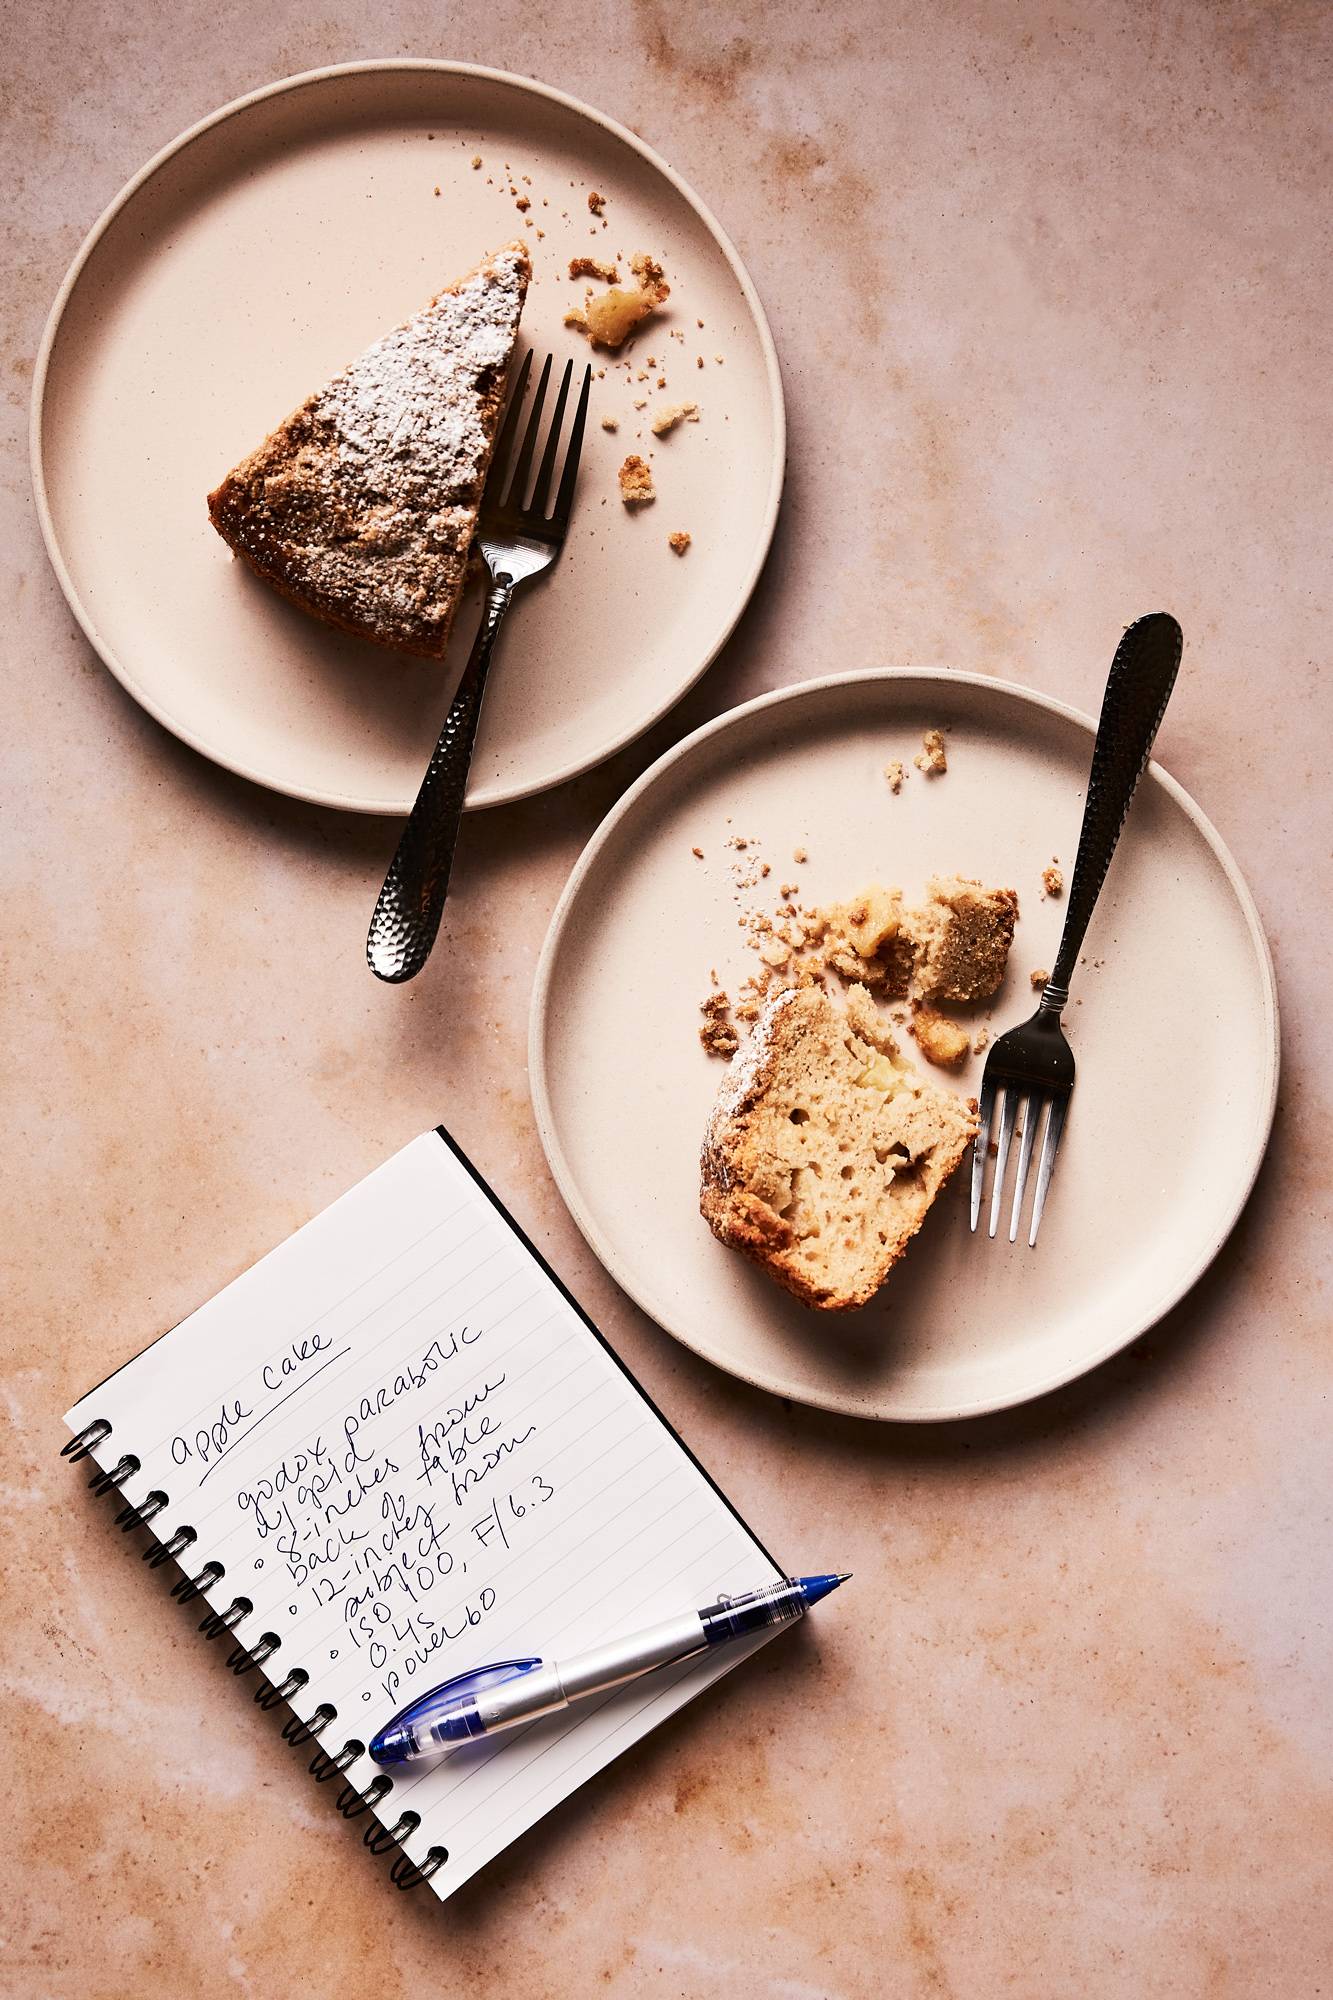 apple cake
godox parabolic
w/ grid
• 8-inches from
back of table
• 12-inches from
subject
• ISO 100, F/6.3
0.4s
• power 60